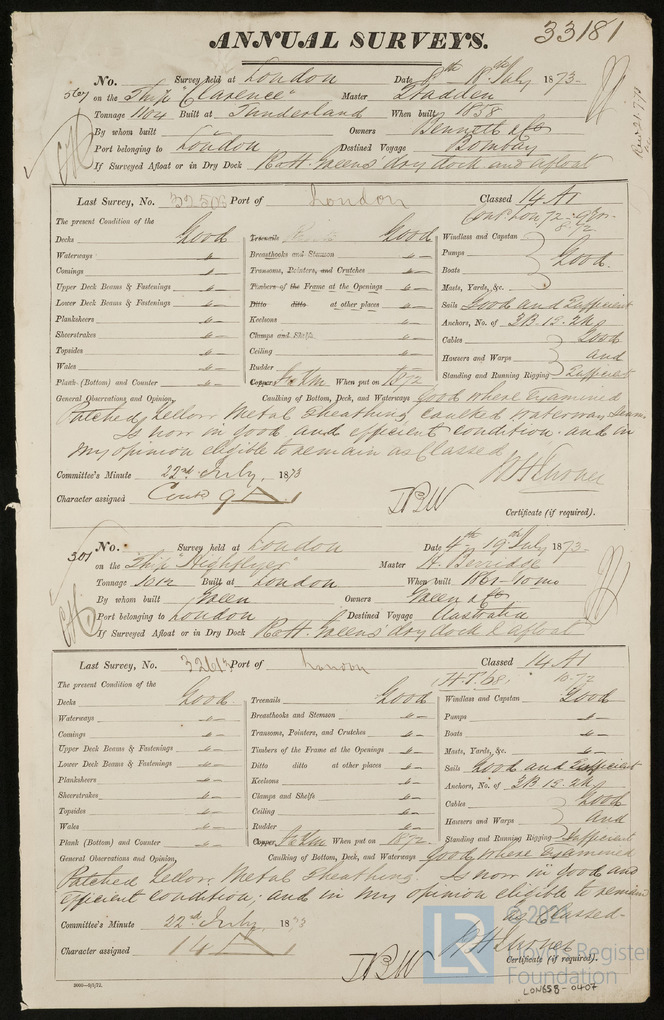 33181
ANNUAL SURVEYS.
No. Survey held at London Date 8th 18th July 1873
567 on the Ship "Clarence" Master
Tonnage 1104 Built at Sunderland When built 1858
By whom built Owners Bennett & Co
Port belonging to London Destined Voyage Bombay
If Surveyed Afloat or in Dry Dock R & H. Greens' dry dock and afloat
Last Survey, No. Port of London Classed 14 A1
The present Condition of the
Decks Good Treenails Good Windlass and Capstan
Waterways " Breasthooks and Stemson " Pumps Good
Comings " Transoms, Pointers, and Crutches " Boats
Upper Deck Beams & Fastenings " Timbers of the Frame at the Openings " Masts, Yards, &c.
Lower Deck Beams & Fastenings " Ditto ditto at other places " Sails Good and Sufficient
Planksheers " Keelsons " Anchors, No. of 3B. 1S. 2K
Sheerstrakes " Clamps and Shelfs " Cables Good
Topsides " Ceiling " Hawsers and Warps and
Wales " Rudder " Standing and Running Rigging Sufficient
Plank (Bottom) and Counter " Copper When put on 1872
General Observations and Opinion, Caulking of Bottom, Deck, and Waterways Good where Examined
Patched Yellow Metal Sheathing, caulked waterway seams
Is now in good and efficient condition and in
my opinion eligible to remain as Classed
Committee's Minute 22nd July, 1873
Character assigned
Certificate (if required).
No. Survey held at London Date 4th 19th July 1873
301 on the Ship "Highflyer" Master H. Berridge
Tonnage 1012 Built at London When built 1861-10 mo
By whom built Green Owners Green & Co
Port belonging to London Destined Voyage Australia
If Surveyed Afloat or in Dry Dock R & H. Greens' dry dock & afloat
Last Survey, No. Port of London Classed 14 A1
The present Condition of the 10.72
Decks Good Treenails Good Windlass and Capstan Good
Waterways " Breasthooks and Stemson " Pumps "
Comings " Transoms, Pointers, and Crutches " Boats "
Upper Deck Beams & Fastenings " Timbers of the Frame at the Openings " Masts, Yards, &c. "
Lower Deck Beams & Fastenings " Ditto ditto at other places " Sails Good and Sufficient
Planksheers " Keelsons " Anchors, No. of 3B. 1S. 2K
Sheerstrakes " Clamps and Shelfs " Cables Good
Topsides " Ceiling " Hawsers and Warps and
Wales " Rudder " Standing and Running Rigging Sufficient
Plank (Bottom) and Counter " Copper When put on 1872
General Observations and Opinion, Caulking of Bottom, Deck, and Waterways Good where Examined
Patched Yellow Metal Sheathing. Is now in good and
efficient condition; and in my opinion eligible to remain
as Classed
Committee's Minute 22nd July 1873
Character assigned 14 A 1
Certificate (if required).
© 2021
LR Lloyd's Register
Foundation
LON658-0407